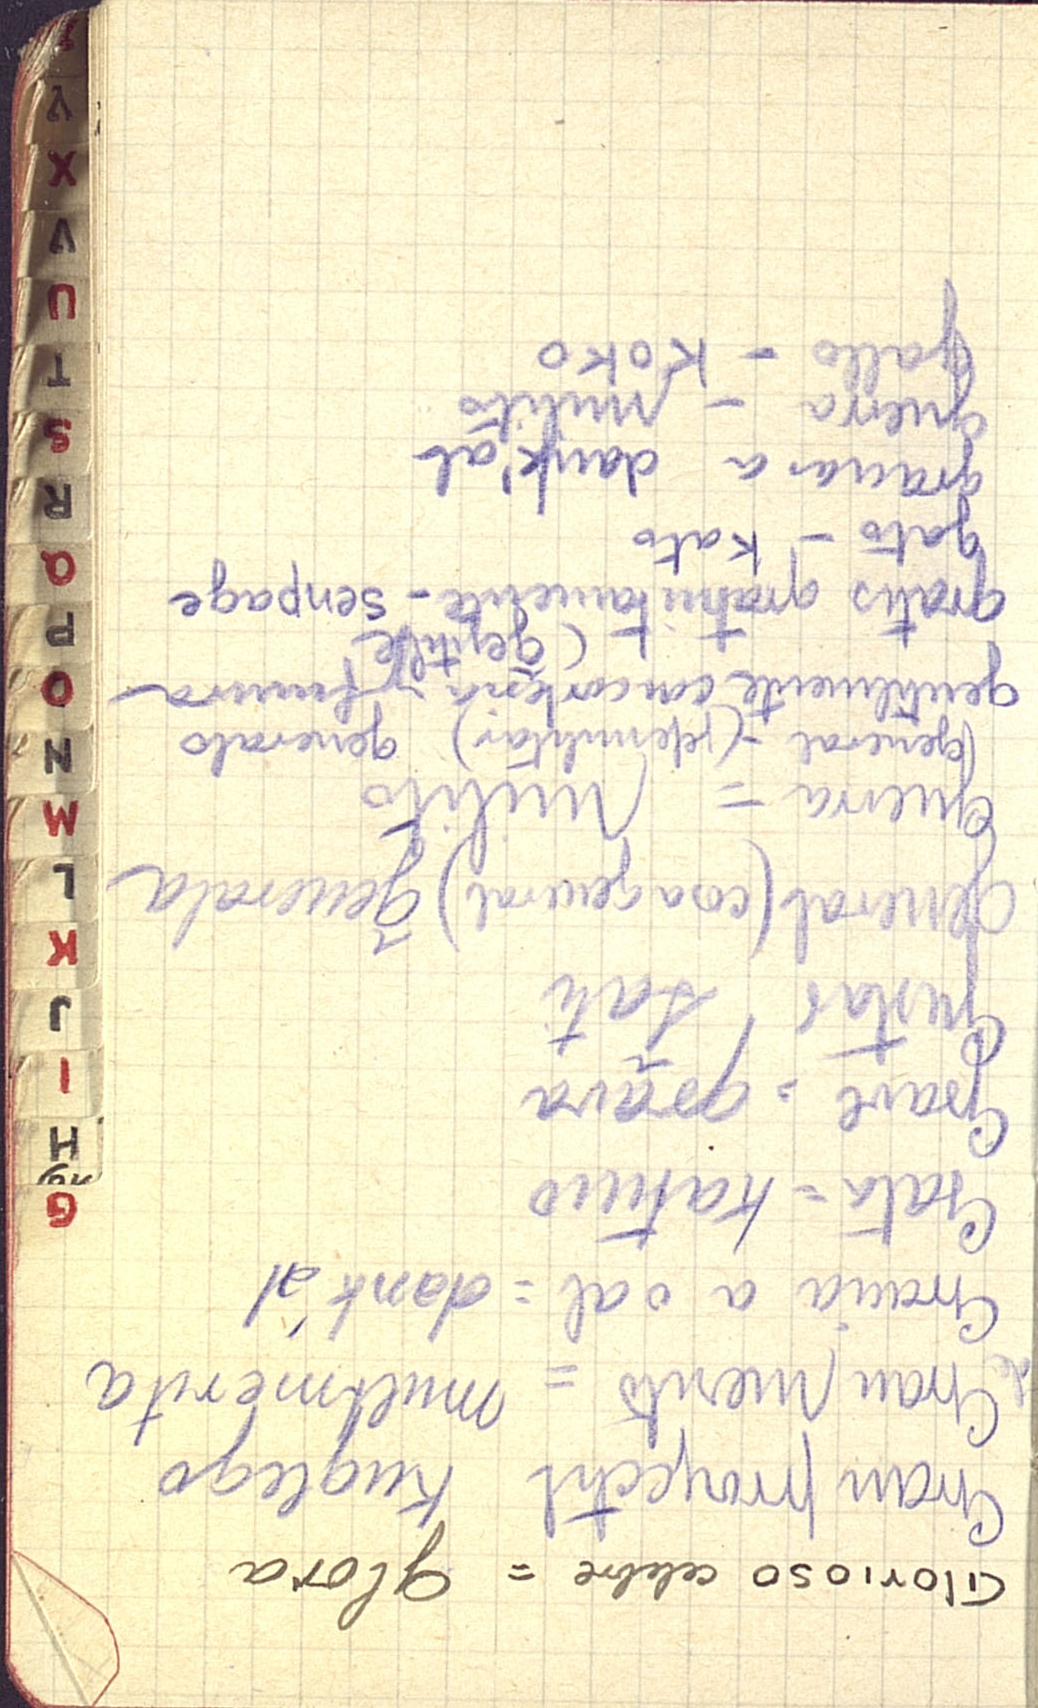 Glorioso celebre = glora
Gran proyectil kuglego
de Gran merito = multmerita
Gracia a sal = dank'al
Grata =
Grave = grava
Gustar ŝati
General (cosa general) ĝenerala
Guerra = milito
General - (jefe militar) generalo
gentilmente con cortesia y finura
(ĝentile
gratis gratuitamente - senpage
gato - kato
gracias a dank'al
guerra - milito
gallo - KOKO
G
H
I
J
K
L
M
N
O
P
Q
R
S
T
U
V
X
Y